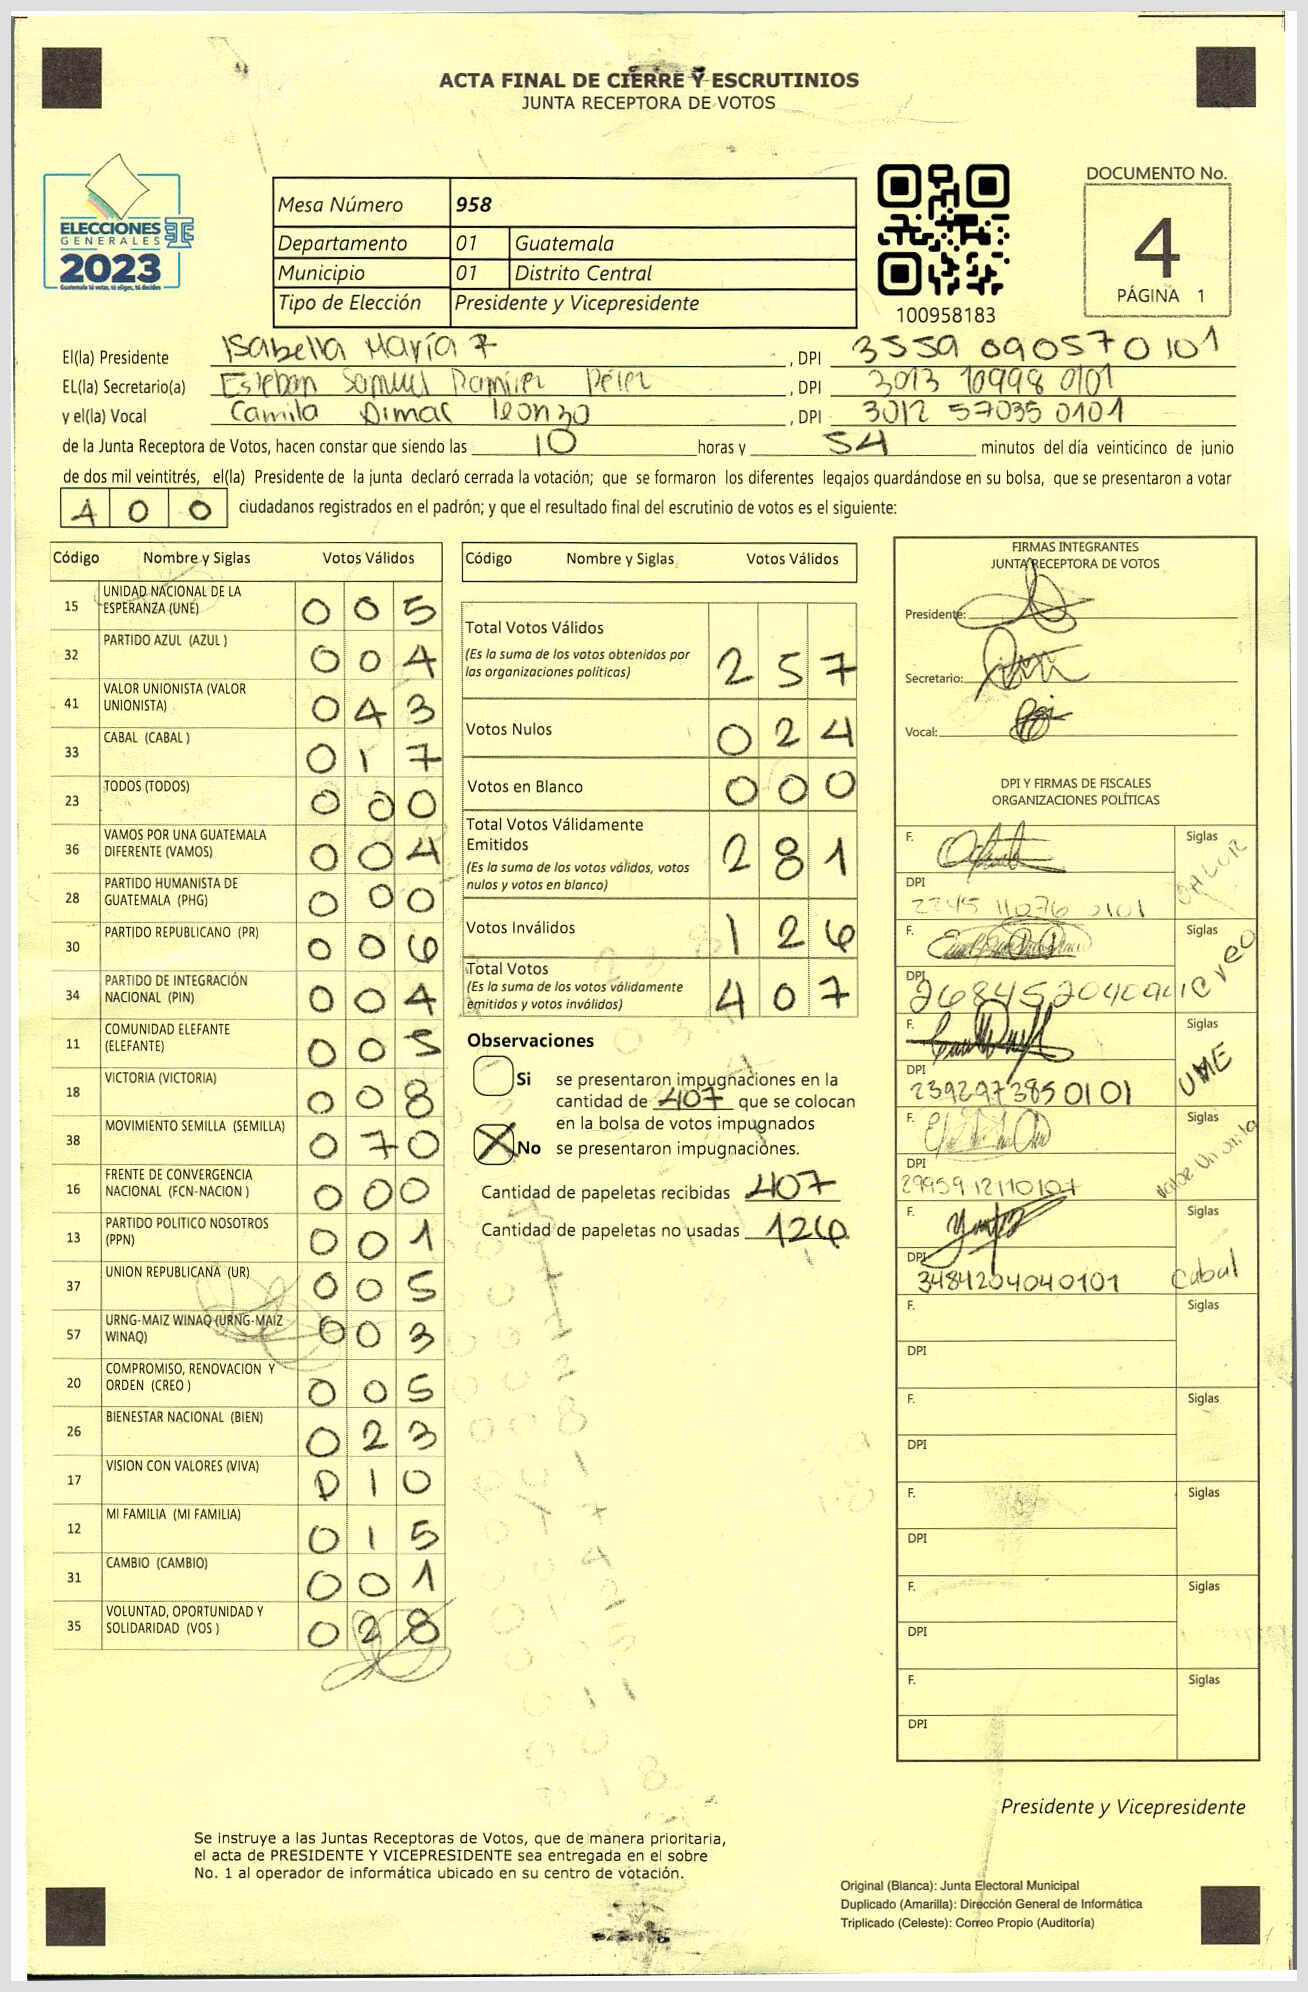 ACTA FINAL DE CIERRE Y ESCRUTINIOS
JUNTA RECEPTORA DE VOTOS
ELECCIONES
GENERALES
2023
Guatemala tú votas, tú eliges, tú decides
Mesa Número 958
Departamento 01 Guatemala
Municipio 01 Distrito Central
Tipo de Elección Presidente y Vicepresidente
100958183
DOCUMENTO No.
4
PÁGINA 1
El(la) Presidente Isabella María , DPI 3559 09057 0101
EL(la) Secretario(a) Esteban Samuel Ramírez Pérez , DPI 3013 10998 0101
y el(la) Vocal Camila Dimas , DPI 3012 57035 0101
de la Junta Receptora de Votos, hacen constar que siendo las 10 horas y 54 minutos del día veinticinco de junio
de dos mil veintitrés, el(la) Presidente de la junta declaró cerrada la votación; que se formaron los diferentes legajos guardándose en su bolsa, que se presentaron a votar
400 ciudadanos registrados en el padrón; y que el resultado final del escrutinio de votos es el siguiente:
Código Nombre y Siglas Votos Válidos
15 UNIDAD NACIONAL DE LA ESPERANZA (UNE) 005
32 PARTIDO AZUL (AZUL ) 004
41 VALOR UNIONISTA (VALOR UNIONISTA) 043
33 CABAL (CABAL ) 017
23 TODOS (TODOS) 000
36 VAMOS POR UNA GUATEMALA DIFERENTE (VAMOS) 004
28 PARTIDO HUMANISTA DE GUATEMALA (PHG) 000
30 PARTIDO REPUBLICANO (PR) 006
34 PARTIDO DE INTEGRACIÓN NACIONAL (PIN) 004
11 COMUNIDAD ELEFANTE (ELEFANTE) 005
18 VICTORIA (VICTORIA) 008
38 MOVIMIENTO SEMILLA (SEMILLA) 070
16 FRENTE DE CONVERGENCIA NACIONAL (FCN-NACION ) 000
13 PARTIDO POLITICO NOSOTROS (PPN) 001
37 UNION REPUBLICANA (UR) 005
57 URNG-MAIZ WINAQ (URNG-MAIZ WINAQ) 003
20 COMPROMISO, RENOVACION Y ORDEN (CREO ) 005
26 BIENESTAR NACIONAL (BIEN) 023
17 VISION CON VALORES (VIVA) 010
12 MI FAMILIA (MI FAMILIA) 015
31 CAMBIO (CAMBIO) 001
35 VOLUNTAD, OPORTUNIDAD Y SOLIDARIDAD (VOS ) 028
Código Nombre y Siglas Votos Válidos
Total Votos Válidos 257
(Es la suma de los votos obtenidos por
las organizaciones políticas)
Votos Nulos 024
Votos en Blanco 000
Total Votos Válidamente
Emitidos 281
(Es la suma de los votos válidos, votos
nulos y votos en blanco)
Votos Inválidos 126
Total Votos 407
(Es la suma de los votos válidamente
emitidos y votos inválidos)
Observaciones
Si se presentaron impugnaciones en la
cantidad de 407 que se colocan
en la bolsa de votos impugnados
X No se presentaron impugnaciones.
Cantidad de papeletas recibidas 407
Cantidad de papeletas no usadas 126
FIRMAS INTEGRANTES
JUNTA RECEPTORA DE VOTOS
Presidente:
Secretario:
Vocal:
DPI Y FIRMAS DE FISCALES
ORGANIZACIONES POLÍTICAS
F. Siglas VALOR
DPI 2245 11076 0101
F. Siglas Creo
DPI
F. Siglas UNE
DPI 239297385 0101
F. Siglas
DPI 29959 12110101
F. Siglas Cabal
DPI 3484204040101
F. Siglas
DPI
F. Siglas
DPI
F. Siglas
DPI
F. Siglas
DPI
F. Siglas
DPI
Presidente y Vicepresidente
Se instruye a las Juntas Receptoras de Votos, que de manera prioritaria,
el acta de PRESIDENTE Y VICEPRESIDENTE sea entregada en el sobre
No. 1 al operador de informática ubicado en su centro de votación.
Original (Blanca): Junta Electoral Municipal
Duplicado (Amarilla): Dirección General de Informática
Triplicado (Celeste): Correo Propio (Auditoría)